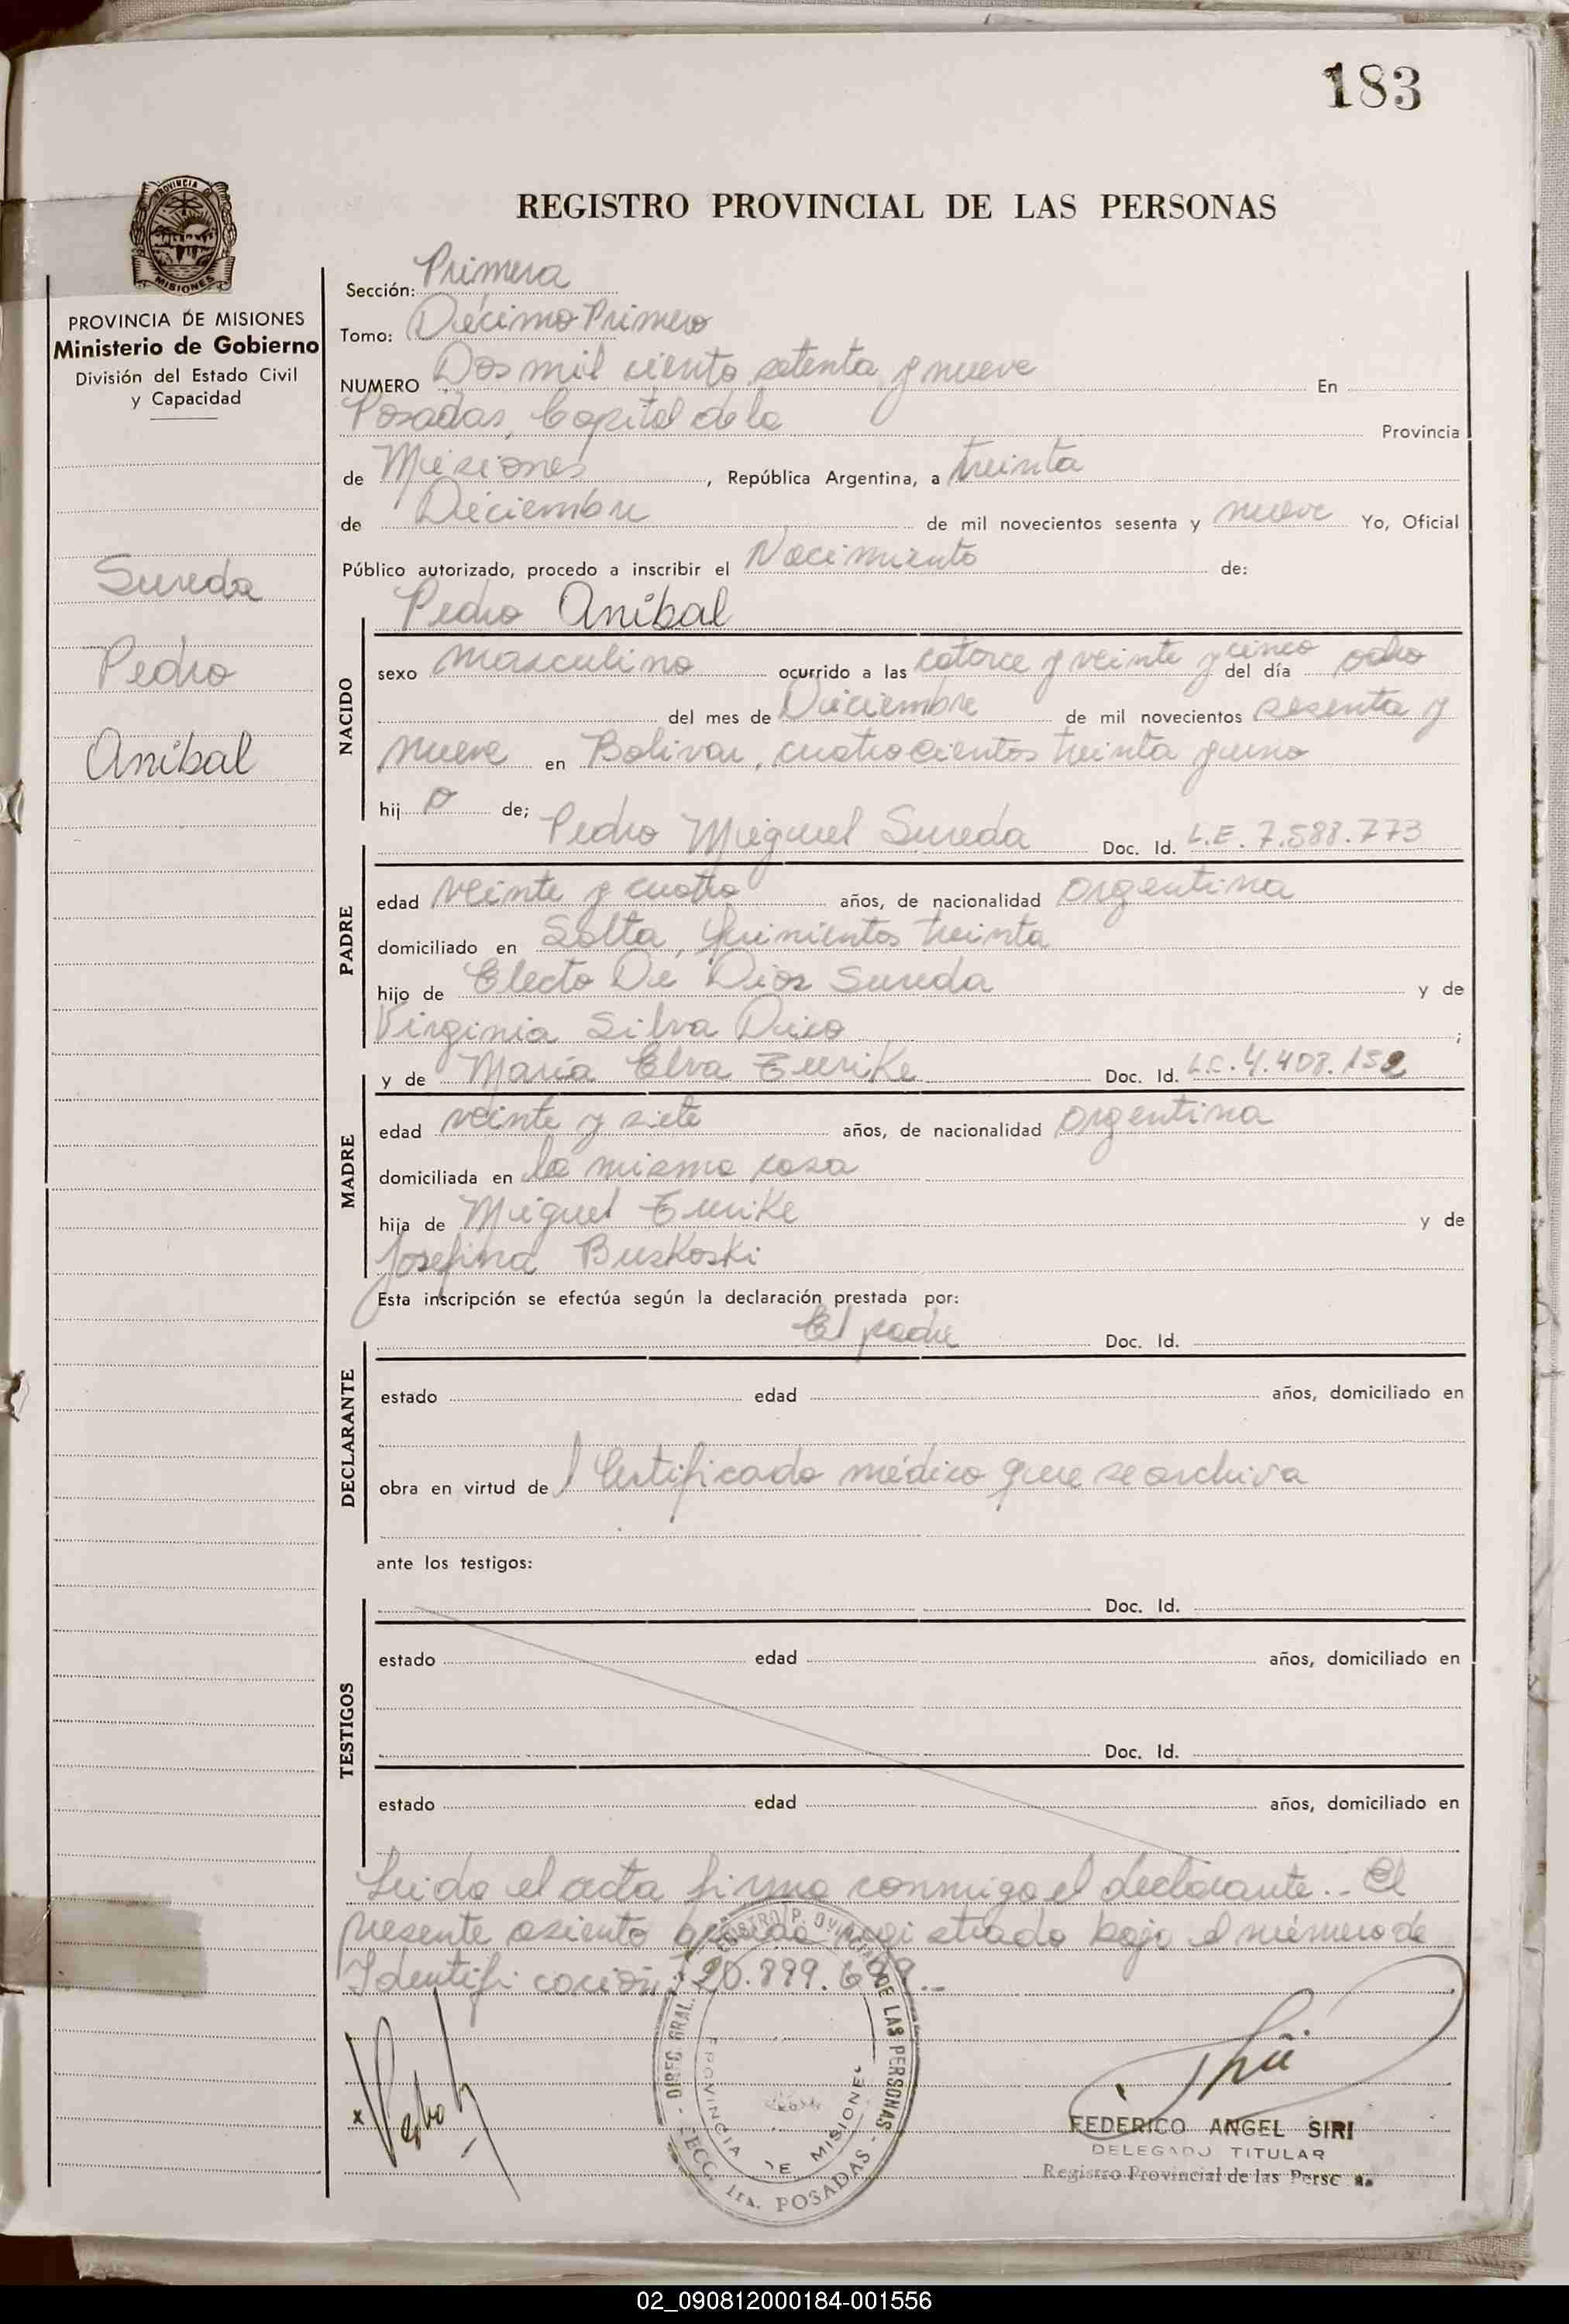 183
REGISTRO PROVINCIAL DE LAS PERSONAS
PROVINCIA
MISIONES
PROVINCIA DE MISIONES
Ministerio de Gobierno
División del Estado Civil
y Capacidad
Sureda
Pedro
Aníbal
Sección: Primera
Tomo: Décimo Primero
NUMERO Dos mil ciento setenta y nueve En
Posadas, Capital de la Provincia
de Misiones, República Argentina, a treinta
de Diciembre de mil novecientos sesenta y nueve Yo, Oficial
Público autorizado, procedo a inscribir el Nacimiento de:
Pedro Aníbal
NACIDO
sexo masculino ocurrido a las catorce y veinte y cinco del día ocho
del mes de Diciembre de mil novecientos sesenta y
nueve en Bolivar, cuatrocientos treinta y uno
hijo de;
Pedro Miguel Sureda Doc. Id. L.E. 7.588.773
PADRE
edad veinte y cuatro años, de nacionalidad argentina
domiciliado en Salta, quinientos treinta
hijo de Electo De Dios Sureda y de
Virginia Silva Dico ;
y de María Elva Eurike Doc. Id. L.C. 4.408.152
MADRE
edad veinte y siete años, de nacionalidad argentina
domiciliada en la misma casa
hija de Miguel Eurike y de
Josefina Buskoski
Esta inscripción se efectúa según la declaración prestada por:
El padre Doc. Id.
DECLARANTE
estado edad años, domiciliado en
obra en virtud de l Certificado médico que se archiva
ante los testigos:
Doc. Id.
TESTIGOS
estado edad años, domiciliado en
Doc. Id.
estado edad años, domiciliado en
Leida el acta firma conmigo el declarante.. El
presente asiento queda registrado bajo el número de
Identificación 20.899.699..
DIREC. GRAL. REGISTRO PROVINCIAL DE LAS PERSONAS
PROVINCIA DE MISIONES
SECC. 1ra. POSADAS
FEDERICO ANGEL SIRI
DELEGADO TITULAR
Registro Provincial de las Persc as
02_090812000184-001556